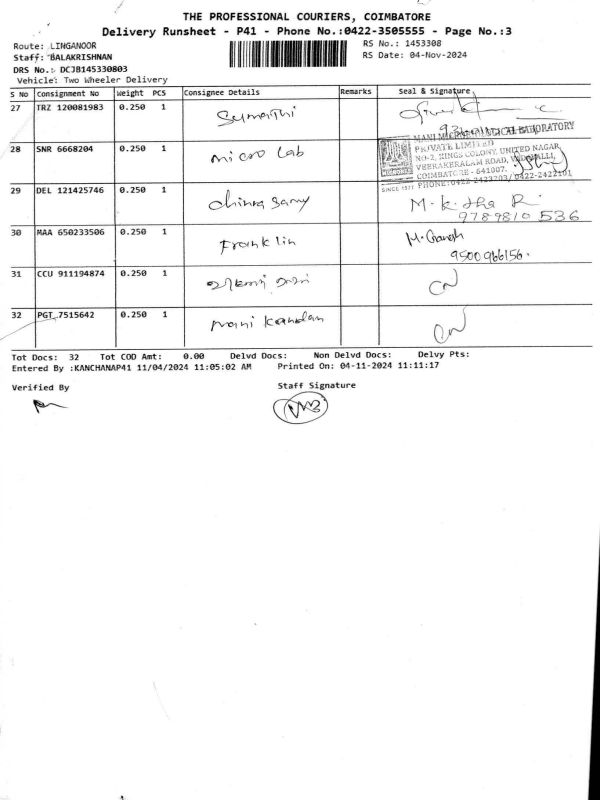 THE PROFESSIONAL COURIERS, COIMBATORE
Delivery Runsheet - P41 - Phone No.:0422-3505555 - Page No.:3
Route: LINGANOOR
RS No.: 1453308
Staff: BALAKRISHNAN
RS Date: 04-Nov-2024
DRS No.: DCJB145330803
Vehicle: Two Wheeler Delivery
S No Consignment No Weight PCS Consignee Details Remarks Seal & Signature
27 TRZ 120081983 0.250 1 Sumaithi
28 SNR 6668204 0.250 1 micro Lab
MANI MICROBIOLOGICAL LABORATORY
PRIVATE LIMITED
NO-2, KINGS COLONY, UNITED NAGAR,
VEERAKERALAM ROAD, VADAVALLI,
COIMBATORE - 641007.
SINCE 1977 PHONE: 0422-2423203/ 0422-2422101
29 DEL 121425746 0.250 1 chinna samy
9789810536
30 MAA 650233506 0.250 1 Franklin
9500966156.
31 CCU 911194874 0.250 1
32 PGT 7515642 0.250 1 mani kandan
Tot Docs: 32 Tot COD Amt: 0.00 Delvd Docs: Non Delvd Docs: Delvy Pts:
Entered By :KANCHANAP41 11/04/2024 11:05:02 AM Printed On: 04-11-2024 11:11:17
Verified By Staff Signature